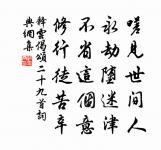 嗟見世間人
永劫墮迷津
不省這個意
修行徒苦辛
釋雲偈頌二十九首詞
典網集